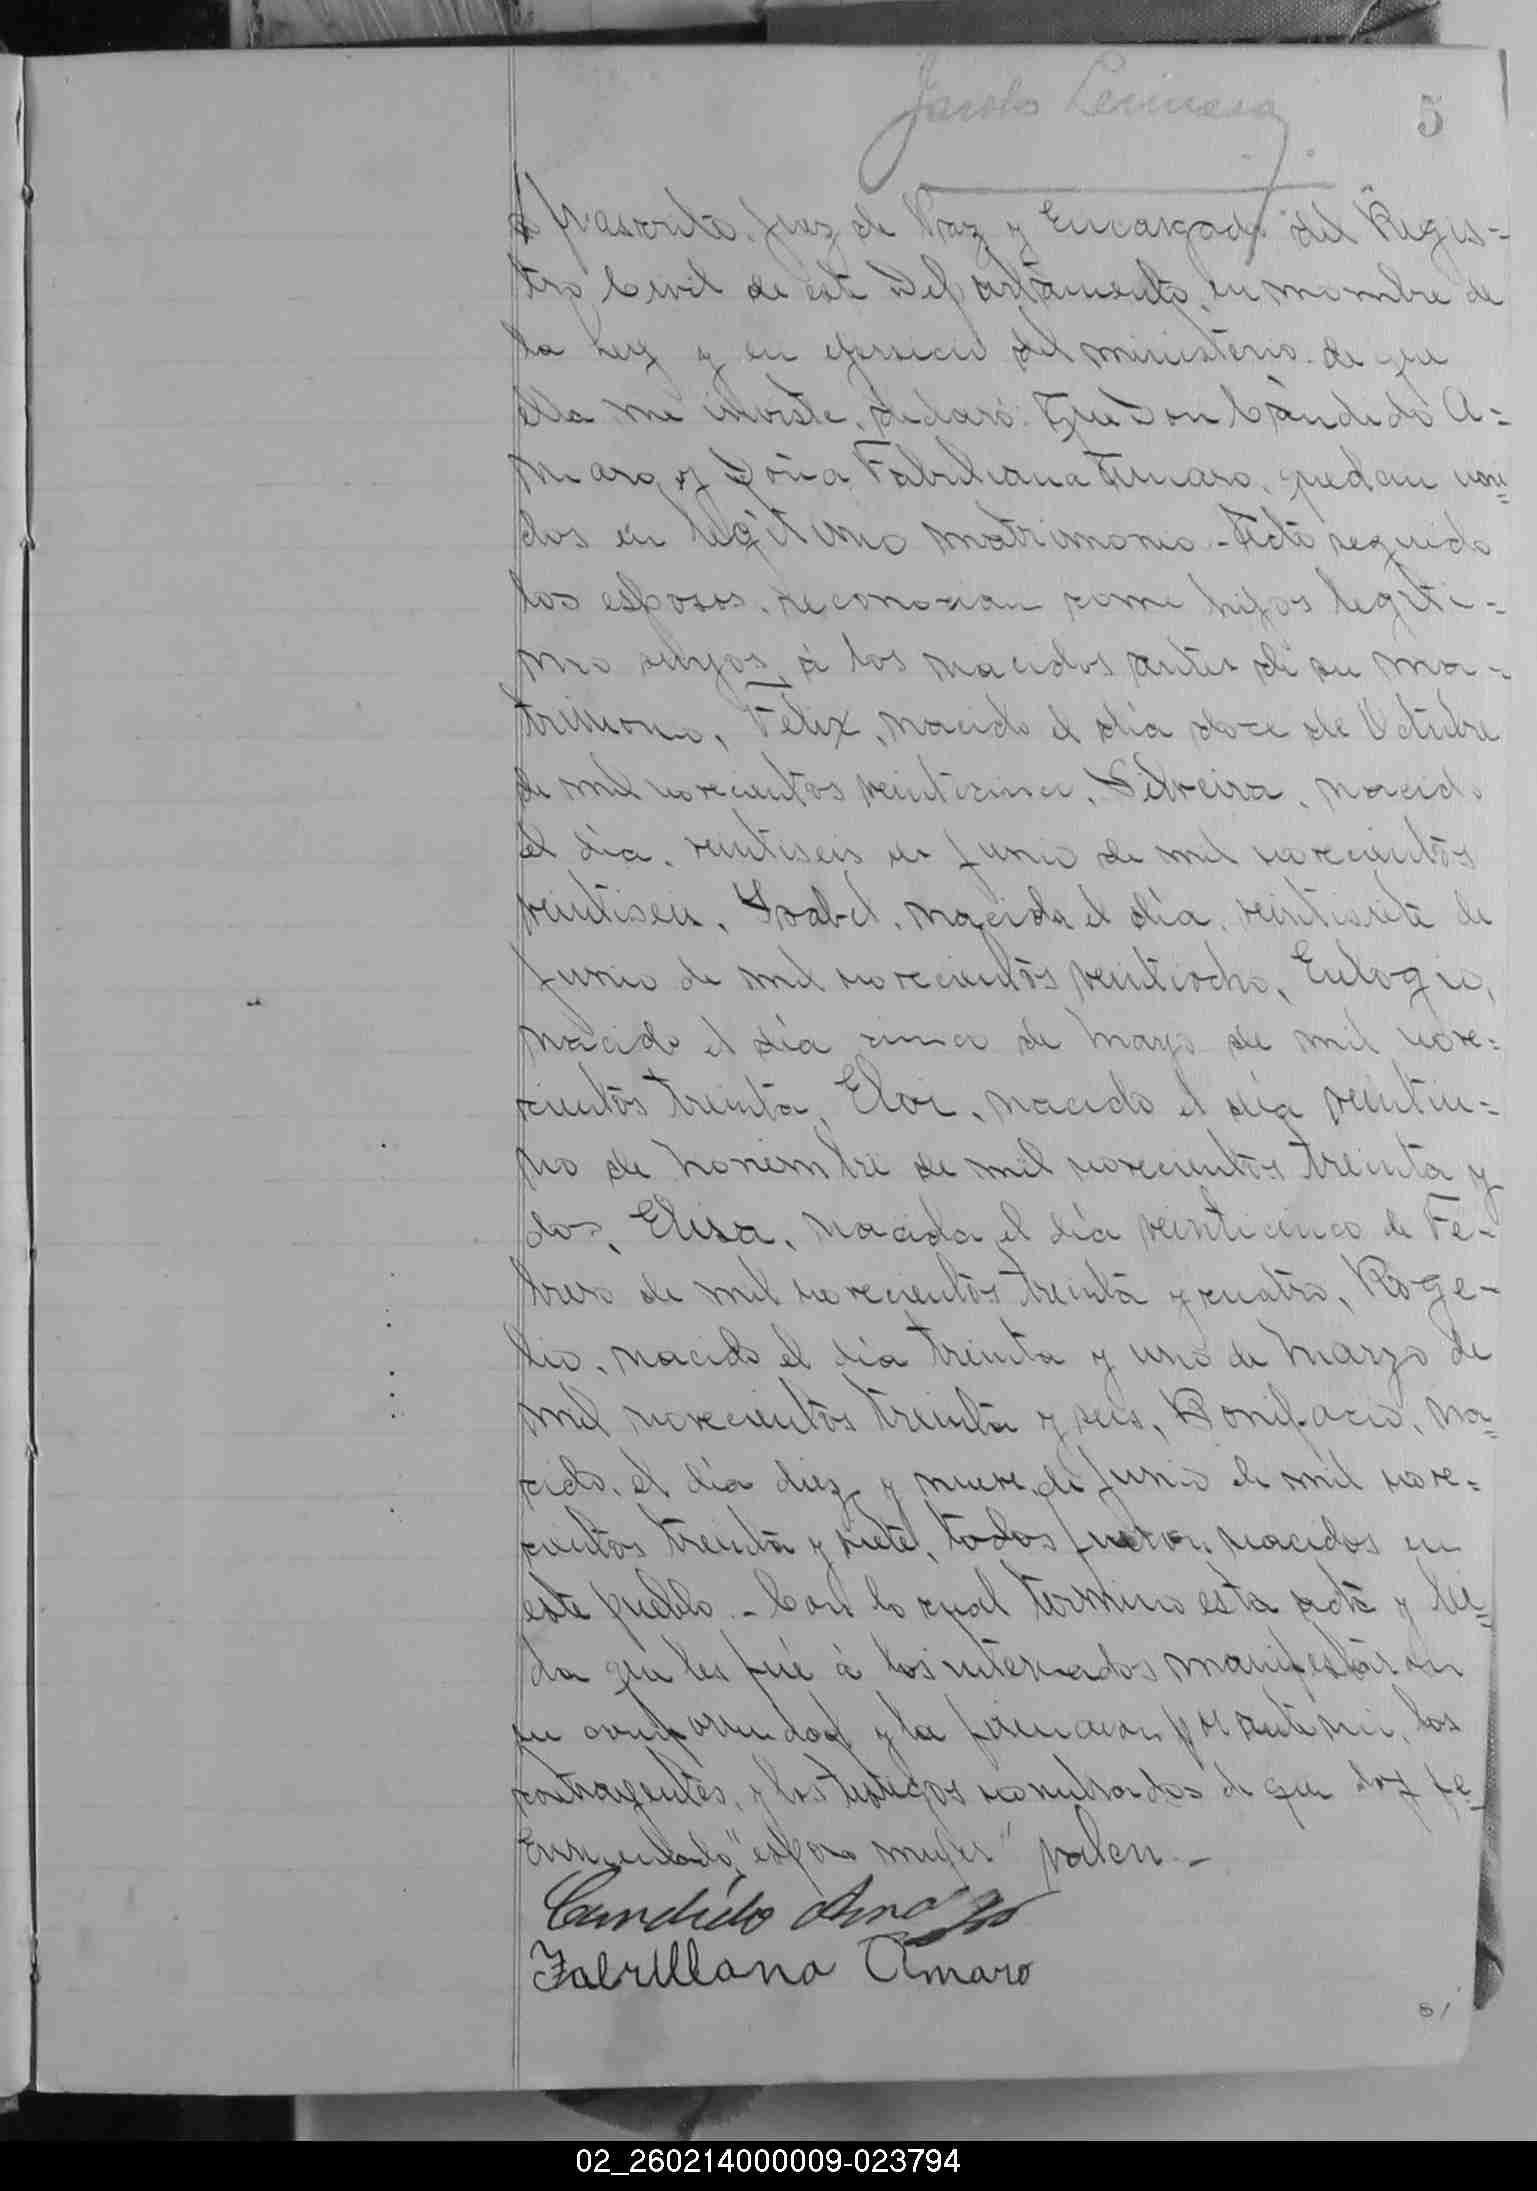 Jacobo
5
Infrascrito Juez de Paz y Encargado del Regis-
tro Civil de este Departamento, en nombre de
la Ley y en ejersicio del ministerio de que
ella me inviste, declaró: Que Don Cándido A-
maro y Doña Fabriliana Amaro, quedan uni-
dos en legítimo matrimonio.- Acto seguido
los esposos, reconocian como hijos legíti-
mo suyos, á los nacidos antes de su ma-
trimonio, Félix, nacido el día doce de Octubre
de mil novecientos veinticinco, Silveira, nacido
el día, veintiseis de Junio de mil novecientos
veintiseis, Ysabel, nacida el día, veintisiete de
Junio de mil novecientos veintiocho, Eulogio,
nacido el día cinco de Mayo de mil nove-
cientos treinta, Eloi, nacido el día veintiu-
no de Noviembre de mil novecientos treinta y
dos, Elisa, nacida el día veinticinco de Fe-
brero de mil novecientos treinta y cuatro, Roge-
lio, nacido el día treinta y uno de Marzo de
mil novecientos treinta y seis, Bonifacio, na-
cido, el día diez y nueve de Junio de mil nove-
cientos treinta y siete, todos fueron nacidos en
este pueblo.- Con lo cual termino esta acta y lei-
da que les fué á los interesados manifestaron
su conformidad y la firmaron por ante mi, los
contrayentes, y los testigos nombrados de que doy fe-
Enmendado "esposo mujer" valen.-
Candido Amaro
Fabrillana Amaro
02_260214000009-023794